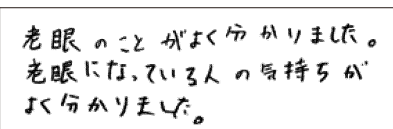 老眼のことがよく分かりました。
老眼になっている人の気持ちが
よく分かりました。